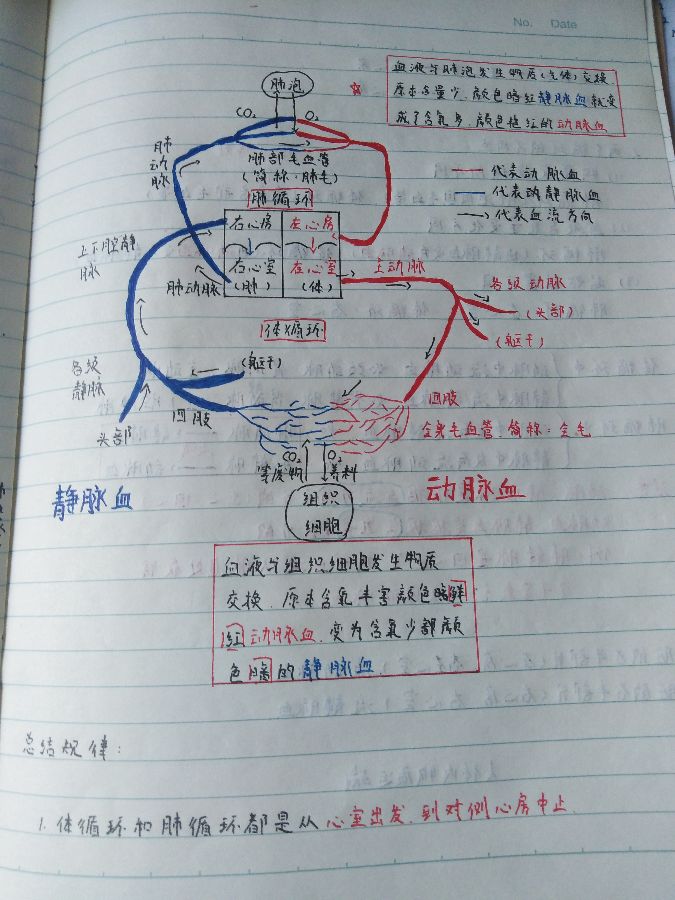 No. Date
肺泡
CO₂
O₂
血液与肺泡发生物质(气体)交换
原本含量少,颜色暗红静脉血就变
成了含氧多,颜色鲜红的动脉血
肺动脉
肺部毛血管
(简称:肺毛)
肺循环
代表动脉血
代表静脉血
代表血流方向
右心房
左心房
右心室
左心室
(肺)
(体)
上下腔静脉
肺动脉
主动脉
各级动脉
(头部)
(躯干)
体循环
各级静脉
(躯干)
四肢
头部
四肢
全身毛血管,简称:全毛
CO₂
O₂
等废物
养料
静脉血
动脉血
组织
细胞
血液与组织细胞发生物质
交换,原本含氧丰富颜色鲜
红动脉血,变为含氧少颜
色暗的静脉血
总结规律:
1.体循环和肺循环都是从心室出发,到对侧心房中止